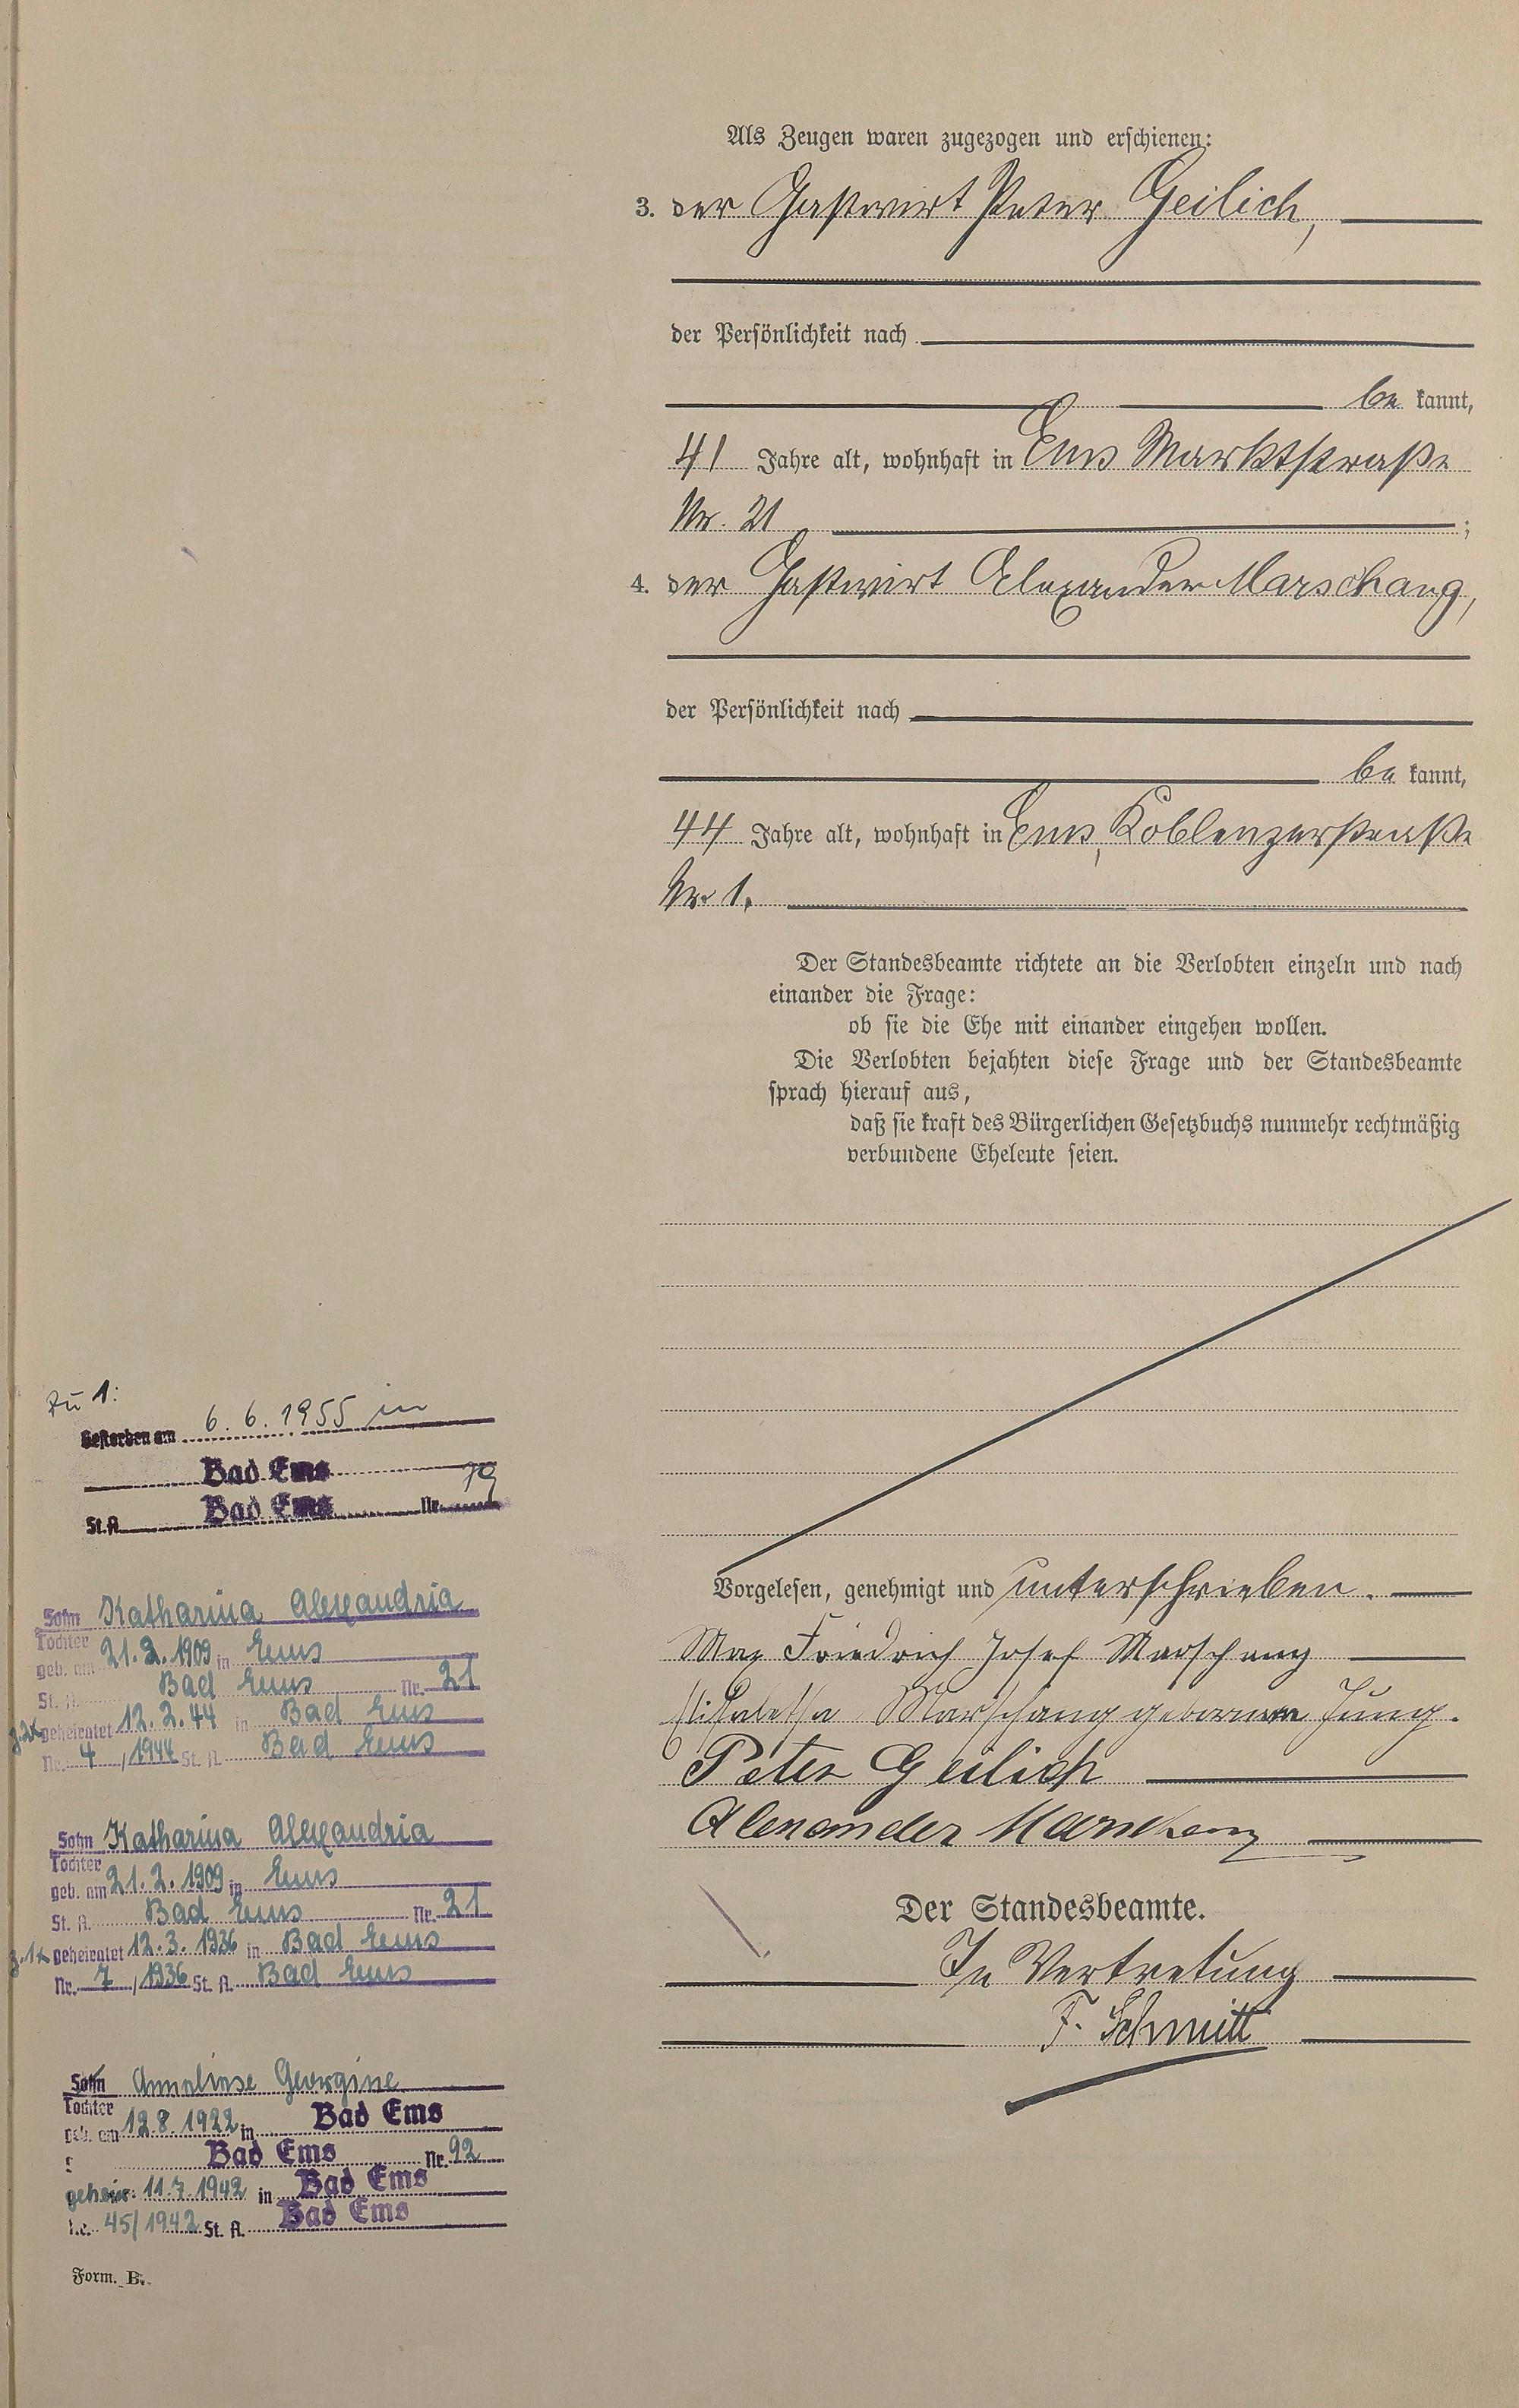 Als Zeugen waren zugezogen und erschienen:
3. der Gastwirt Peter Geilich,
der Persönlichkeit nach
be kannt,
41 Jahre alt, wohnhaft in Ems Marktstraße
Nr. 21 ;
4. der Gastwirt Alexander Marschang,
der Persönlichkeit nach
be kannt,
44 Jahre alt, wohnhaft in Ems, Koblenzerstraße
Nr. 1.
Der Standesbeamte richtete an die Verlobten einzeln und nach
einander die Frage:
ob sie die Ehe mit einander eingehen wollen.
Die Verlobten bejahten diese Frage und der Standesbeamte
sprach hierauf aus,
daß sie kraft des Bürgerlichen Gesetzbuchs nunmehr rechtmäßig
verbundene Eheleute seien.
Vorgelesen, genehmigt und unterschrieben.
Max Friedrich Josef Marschang
Elisabetha Marschang geborene Jung.
Peter Geilich
Alexander Marschang
Der Standesbeamte.
In Vertretung
F. Schmitt
Zu 1:
Gestorben am 6. 6. 1955 in
Bad Ems
St. A. Bad Ems Nr. 79
Sohn Katharina Alexandria
Tochter
geb. am 21. 2. 1909 in Ems
St. A. Bad Ems Nr. 21
z. 2x geheiratet 12. 2. 44 in Bad Ems
Nr. 4 / 1944 St. A. Bad Ems
Sohn Katharina Alexandria
Tochter
geb. am 21. 2. 1909 in Ems
St. A. Bad Ems Nr. 21
z. 1x geheiratet 12. 3. 1936 in Bad Ems
Nr. 7 / 1936 St. A. Bad Ems
Sohn Anneliese Georgine
Tochter
geb. am 12. 8. 1922 in Bad Ems
Bad Ems Nr. 92
geheir. 11. 7. 1942 in Bad Ems
45 / 1942 St. A. Bad Ems
Form. B.